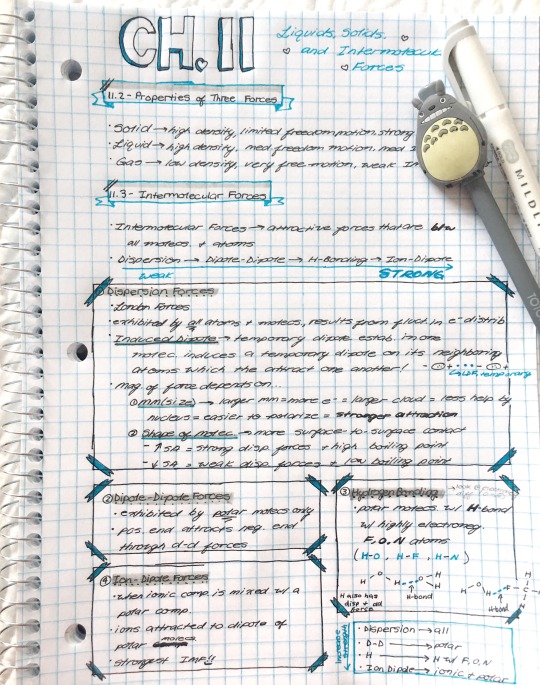 CH. 11
Liquids, Solids,
and Intermolecular
Forces
11.2 - Properties of Three Forces
· Solid → high density, limited freedom motion, strong
· Liquid → high density, med freedom motion, med s
· Gas → low density, very free motion, weak In
11.3 - Intermolecular Forces
· Intermolecular Forces → attractive forces that are btw
all molecs. + atoms
· Dispersion → Dipole-Dipole → H-Bonding → Ion-Dipole
weak STRONG
① Dispersion Forces
· London Forces
· exhibited by all atoms + molecs, results from fluct. in e⁻ distrib
· Induced Dipole → temporary dipole estab. in one
molec. induces a temporary dipole on its neighboring
atoms which the attract one another!
temporary
· mag. of force depends on...
① mm (size) → larger mm = more e⁻ = larger cloud = less help by
nucleus = easier to polarize = stronger attraction
② Shape of molec. → more surface-to-surface contact
- ↑ SA = strong disp. forces + high boiling point
- ↓ SA = weak disp. forces + low boiling point
② Dipole-Dipole Forces
· exhibited by polar molecs only
· pos. end attracts neg. end
through d-d forces
③ Hydrogen Bonding
· polar molecs. w/ H-bond
w/ highly electroneg.
F, O, N atoms
(H-O, H-F, H-N)
H O H O H H O H F C H H
H-bond
H-bond
H also has
disp + dd
force
④ Ion-Dipole Forces
· when ionic comp. is mixed w/ a
polar comp.
· ions attracted to dipole of
polar molecs
· strongest IMF!!
Increase Strength
· Dispersion → all
· D-D → polar
· H → H w/ F, O, N
· Ion Dipole → ionic + polar
MILDL